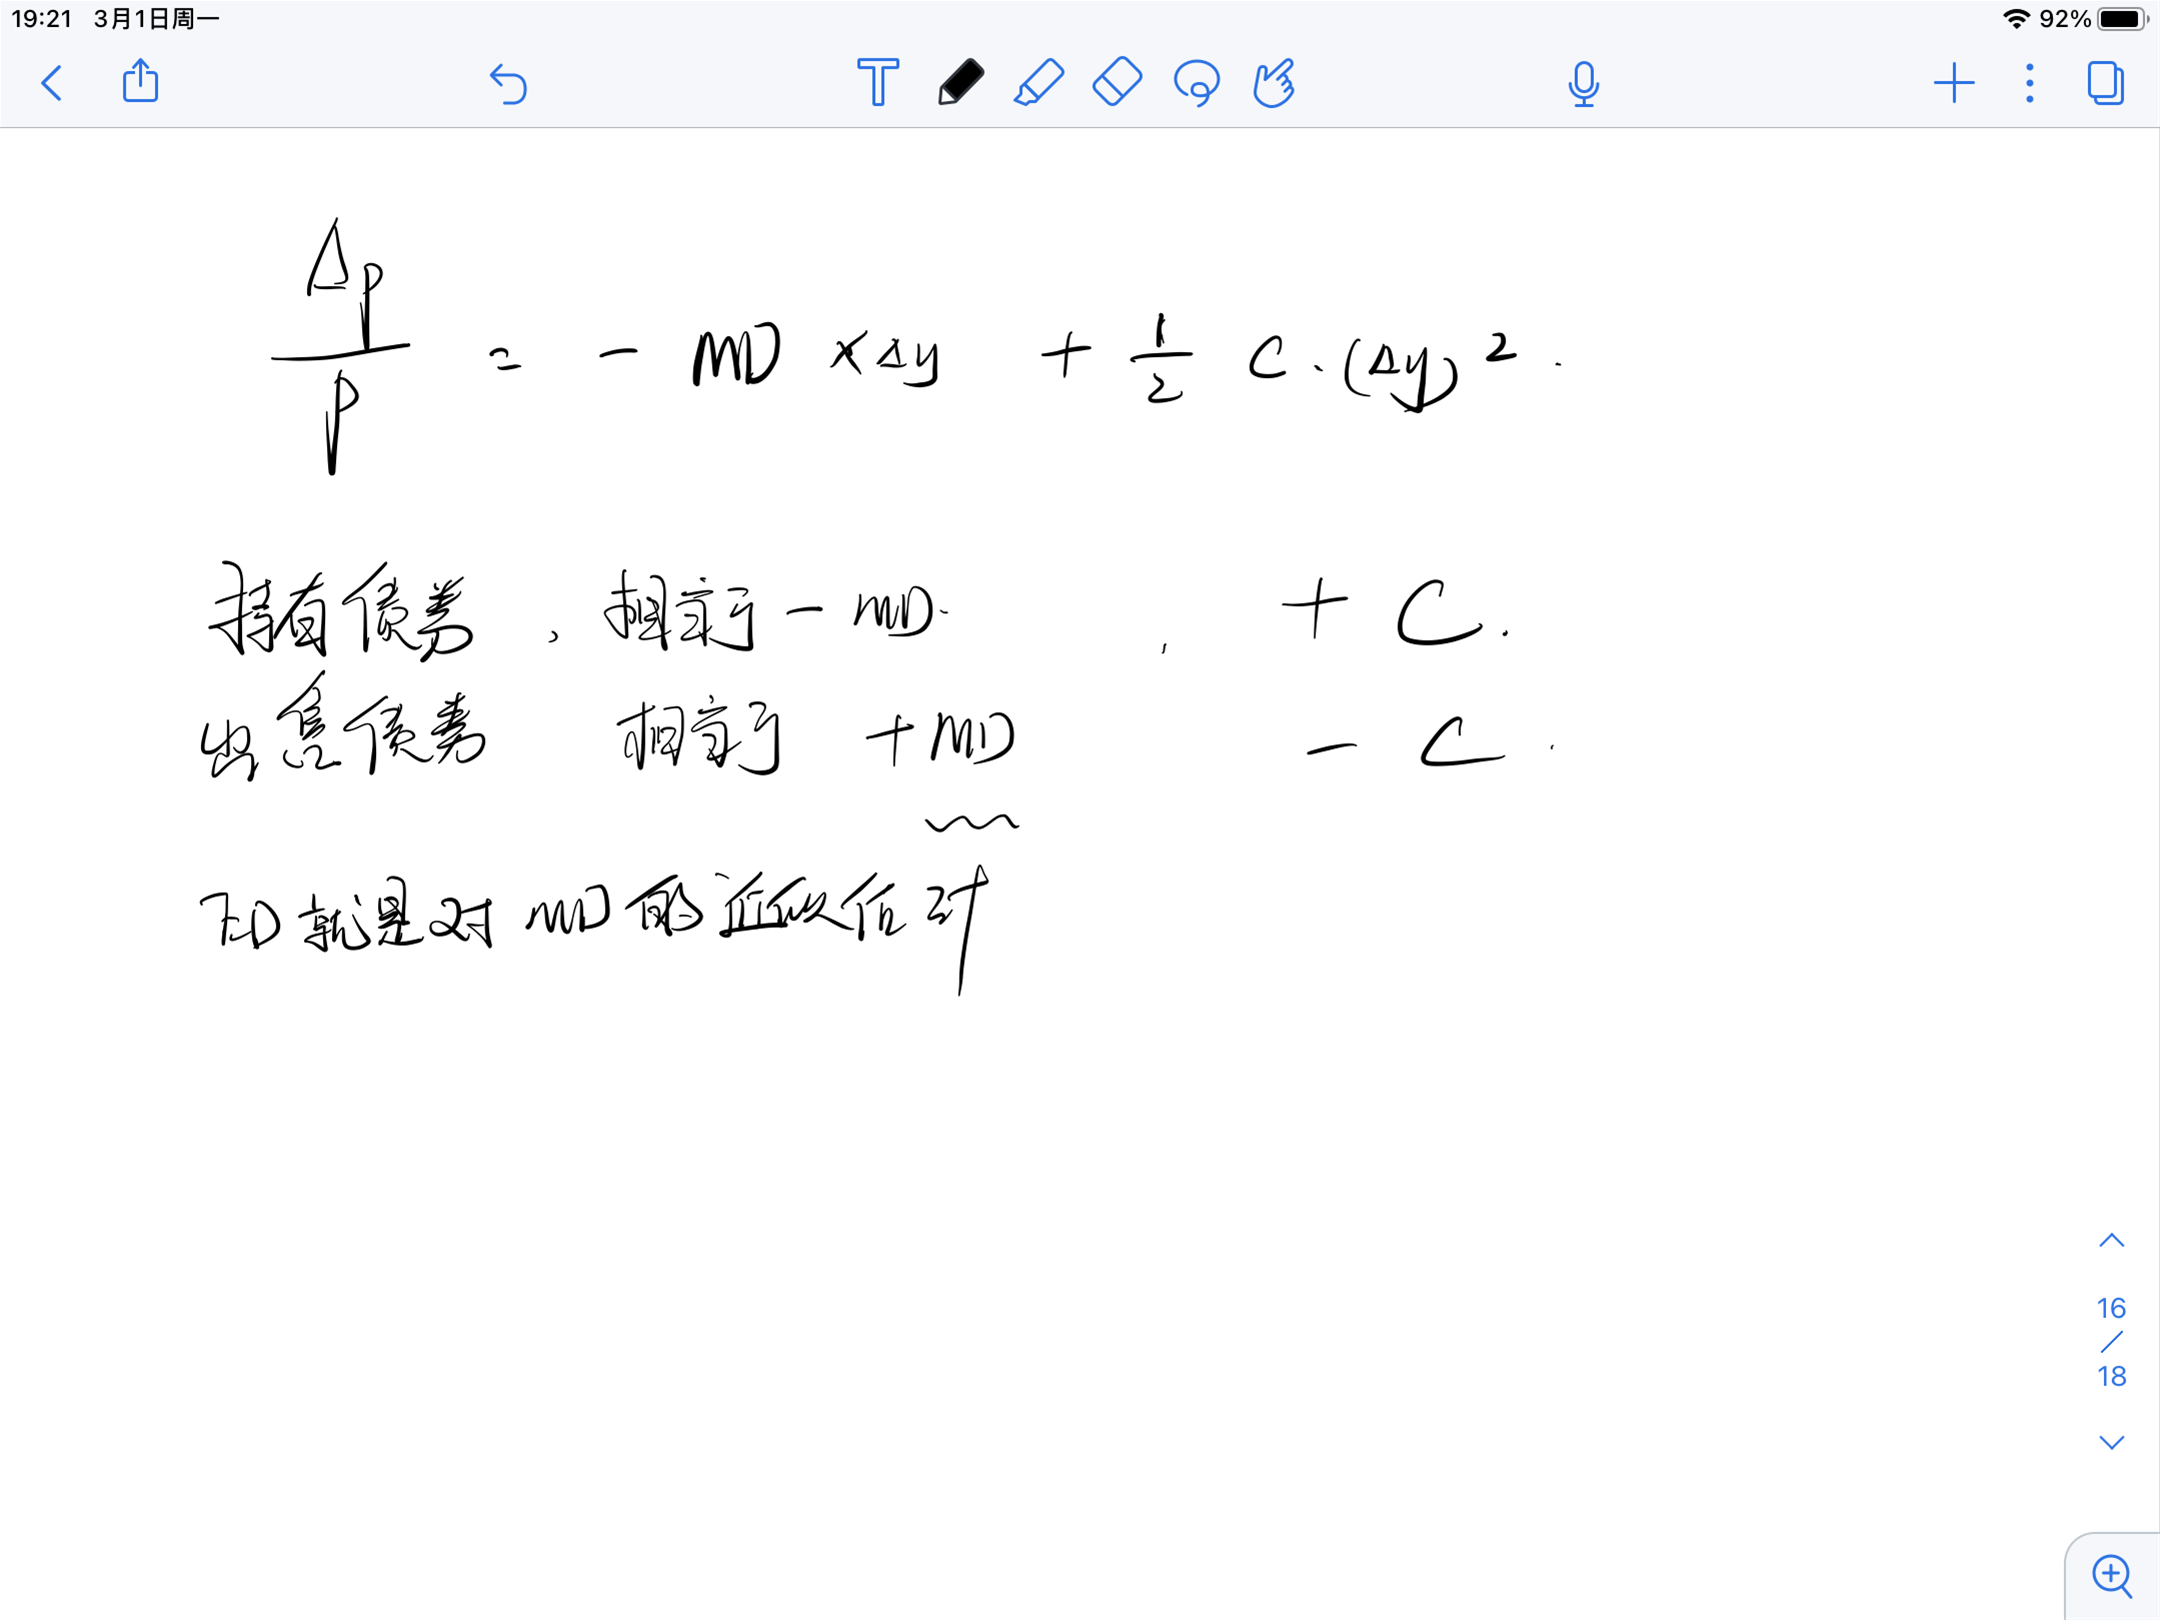 19:21 3月1日周一 92%
Δp/p = - MD × Δy + 1/2 C·(Δy)² .
持有债券, 相当于 - MD. , + C.
出售债券 相当于 + MD - C.
ED就是对MD的近似估计
16
/
18